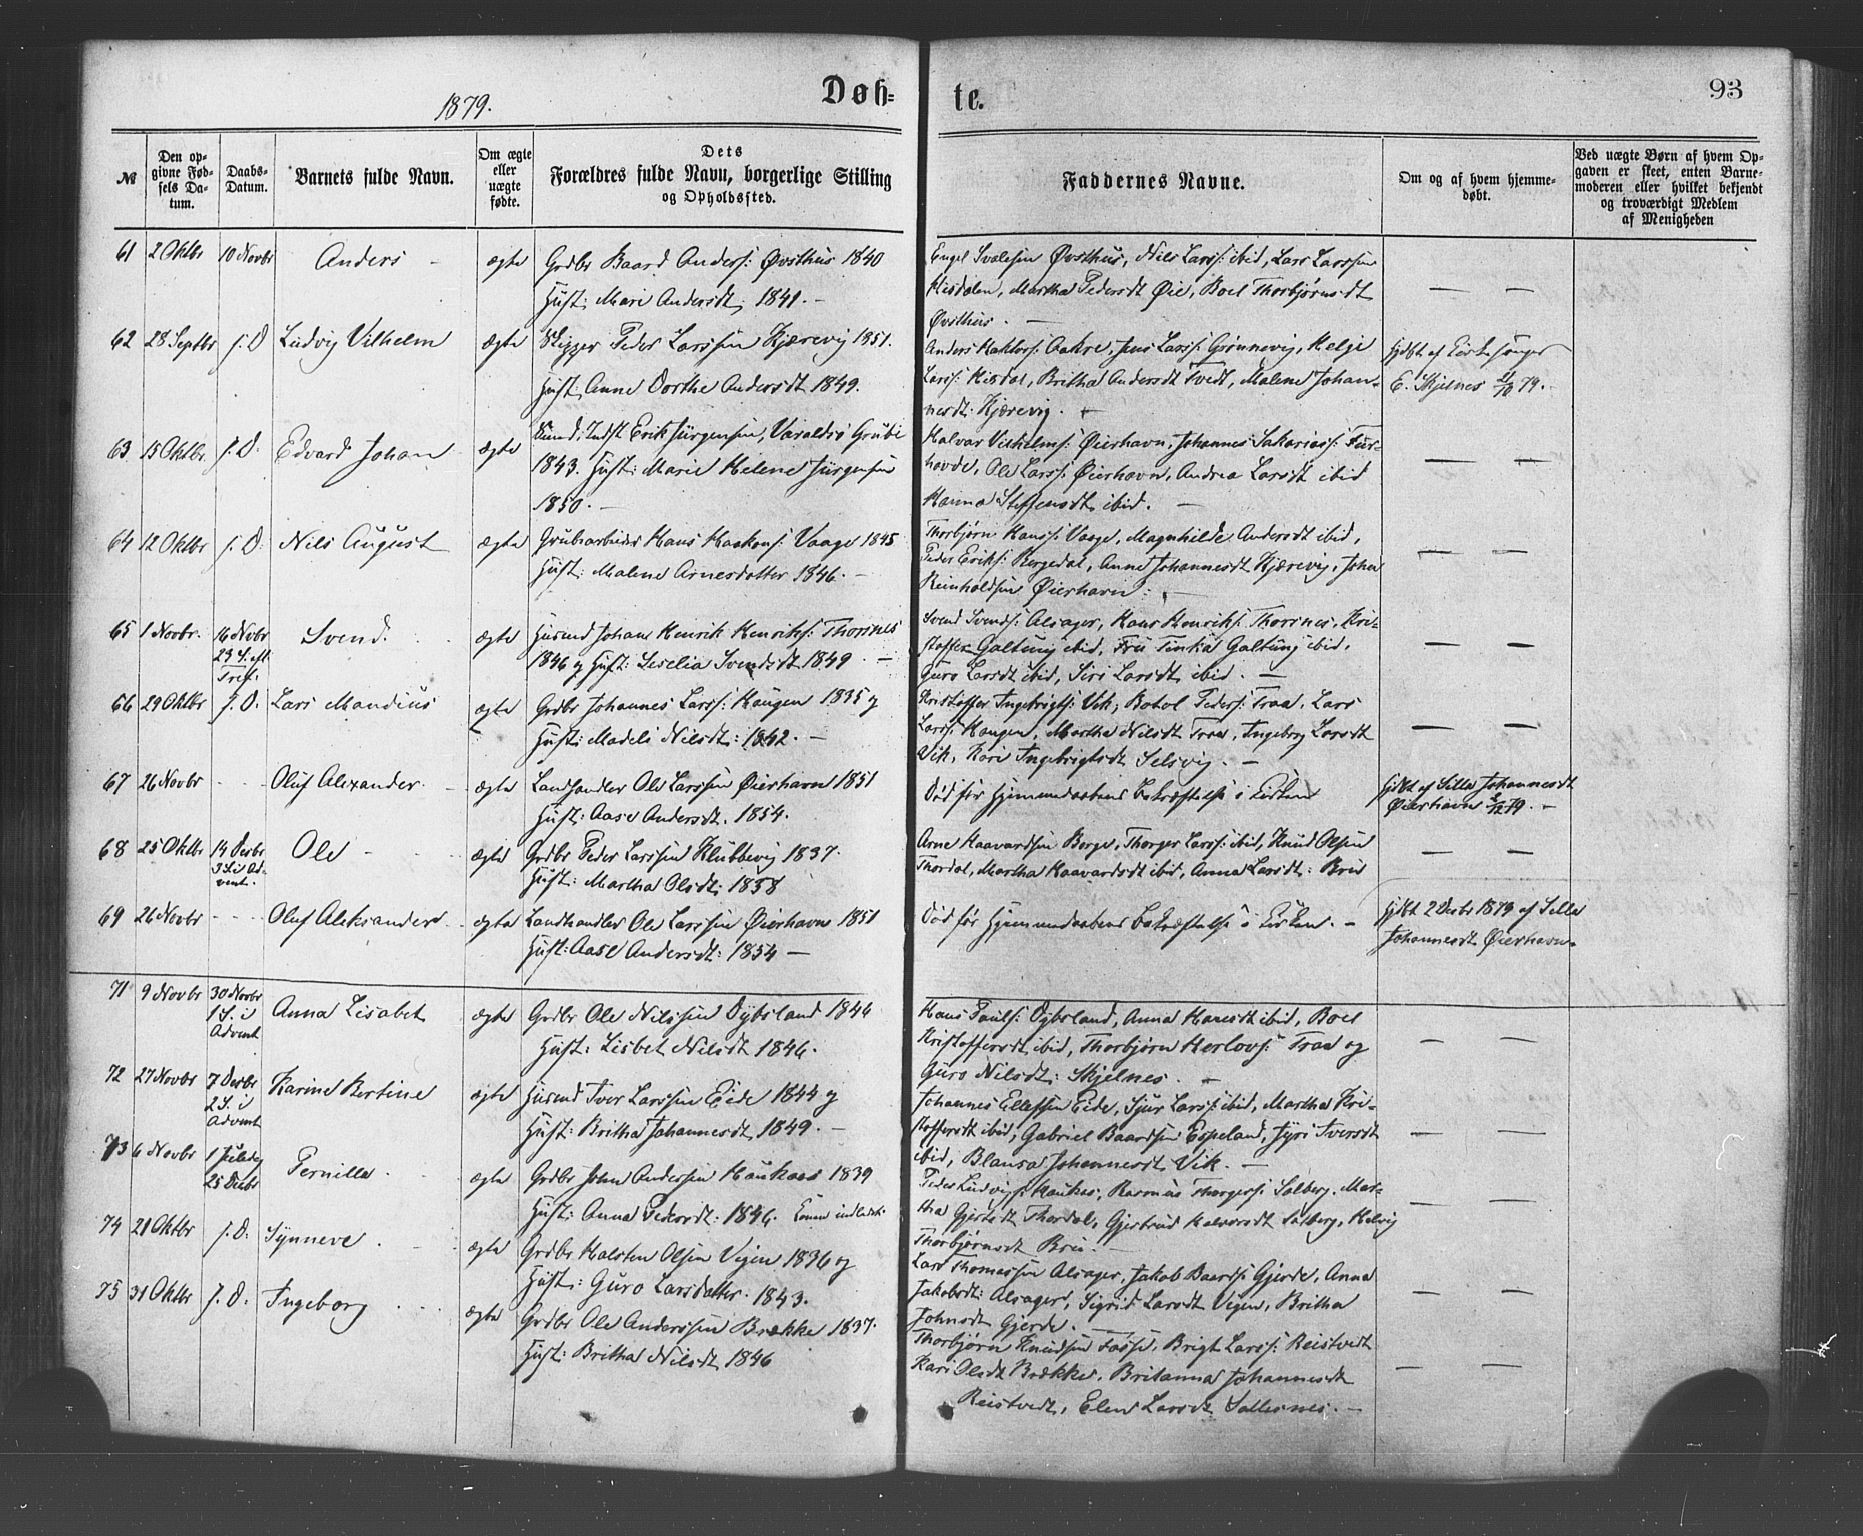 1879.
Døb-
te.
93
№
Den op-
givne Fød-
sels Da-
tum.
Daabs-
Datum.
Barnets fulde Navn.
Om ægte
eller
uægte
fødte.
Dets
Forældres fulde Navn, borgerlige Stilling
og Opholdssted.
Faddernes Navne.
Om og af hvem hjemme-
døbt.
Ved uægte Børn af hvem Op-
gaven er skeet, enten Barne-
moderen eller hvilket bekjendt
og troværdigt Medlem
af Menigheden
61 2 Oktbr 10 Novbr Anders - ægte Grdbr Baard Anders: Øvsthus 1840
Hust: Mari Andersdt, 1841. -
Engel Svalesen Øvsthus, Nils Larss: ibid, Lars Larssen
Hisdalen, Martha Pedersdt Øie, Boel Thorbjørnsdt
Øvsthus. -
62 28 Septbr s. D Ludvig Vilhelm ægte Skipper Peder Larssen Kjærevig 1851.
Hust, Anne Dorthe Andersdt 1849.
Anders Haktors: Aakre, Jens Larss: Grønnevig, Helje
Larss: Hisdal, Britha Andersdt Tvedt, Malene Johan-
nesdt: Kjærevig.
Hjdbt af
E. Skjelnes 79.
63 15 Oktbr. s. D. Edvard Johan ægte Erik Jürgensen, Varaldsø Grube
1843. Hust: Marie Helene Jürgensen
1850. -
Halvor Vilhelms: Øierhavn, Johannes Sakarias: Fur-
hovde, Ole Larss: Øierhavn, Andrea Larsdt ibid
Hanna Steffensdt ibid. -
64 12 Oktbr s. D. Nils August ægte Grubearbeider Hans Haakons: Vaage 1845
Hust: Malene Arnesdatter 1846. -
Thorbjørn Hanss: Vaage, Magnhilde Andersdt ibid,
Peder Eriks: Bergedal, Anne Johannesdt Kjærevig, John
Reinholdsen Øierhavn: -
65 1 Novbr. 16 Novbr
23 S. eft.
Tref.
Svend. ægte Husmd Johan Henrik Henriks: Thorsnes
1846 og Hust: Seselia Svendsdt 1849. -
Svend Svends: Alsager, Hans Henriks: Thorsnes, Kri-
stoffer Galtung ibid, Fru Tinka Galtung ibid,
Guro Larsdt ibid, Siri Larsdt ibid. -
66 29 Oktbr s. D. Lars Mandius ægte Grdbr Johannes Larss: Haugen 1835 og
Hust: Madeli Nilsdt: 1842. -
Kristoffer Ingebrigts: Vik, Botol Peders: Traa, Lars
Larss: Haugen, Martha Nilsdt Traa, Ingeborg Larsdt
Vik, Kari Ingebrigtsdt Selsvig. -
67 26 Novbr - - Oluf Alexander. - ægte Landhandler Ole Larssen Øierhavn 1851
Hust: Aase Andersdt. 1854.
Død før Hjemmedaabens Bekræftelse i Kirken
Hjdbt af Silla Johannesdt
Øierhavn 2/12 79. -
68 25 Oktbr 14 Decbr
3 S. i Ad-
vent.
Ole - - ægte Grdbr Peder Larssen Klubbevig 1837.
Hust: Martha Olsdt: 1838
Arne Haavardsen Berge, Thorger Larss: ibid, Knud Olsen
Thordal, Martha Haavardsdt ibid, Anna Larsdt: Brei
69 26 Novbr - - - Oluf Aleksander - ægte Landhandler Ole Larssen Øierhavn 1851
Hust: Aase Andersdt: 1854 -
Død før Hjemmedaabens Bekræftelse i Kirken. -
Hjdbt 2 Decbr 1879 af Silla
Johannesdt Øierhavn.
71 9 Novbr 30 Novbr
1 S. i
Advent
Anna Lisabet ægte Grdbr Ole Nilssen Dybsland 1844
Hust: Lisbet Nilsdt 1846.
Hans Pauls: Dybsland, Anna Hansdt ibid, Boel
Kristoffersdt ibid, Thorbjørn Herlovs: Traa og
Guro Nilsdt: Skjelnes. -
72 27 Novbr 7 Decbr
2 S. i
Advent
Karine Bertine ægte Husmd Iver Larssen Eide 1844 og
Hust: Britha Johannesdt, 1849. -
Johannes Ellefsen Eide, Sjur Larss: ibid, Martha Kri-
stoffersdt ibid, Gabriel Baardsen Espeland, Jyri Iversdt
ibid, Blansa Johannesdt Vik. -
73 6 Novbr 1 Juledag
25 Decbr
Pernilla. ægte Grdbr John Anderssen Haukaas 1839
Hust: Anna Pedersdt: 1846.
Peder Ludvigs: Haukas, Rasmus Thorgers: Solberg, Mar-
tha Gjertsdt Thordal, Gjertrud Halvorsdt Solberg, Helvig
Thorbjørnsdt Brei. -
74 28 Oktbr s. D. Synneve. ægte Grdbr Halsten Olsen Vigen 1836 og
Hust: Guro Larsdatter. 1843.
Lars Thomassen Alsager, Jakob Baards: Gjerde, Anna
Jakobsdt: Alsager, Sigrid Larsdt Vigen, Britha
Johnsdt Gjerde. -
75 31 Oktbr s. D. Ingeborg ægte Grdbr Ole Anderssen Brække 1837.
Hust: Britha Nilsdt 1846
Thorbjørn Knudsen Fosse, Brigt Larss: Reistvedt
Kari Olsdt Brække, Britanna Johannesdt
Reistvedt, Elen Larsdt Sallesnes. -